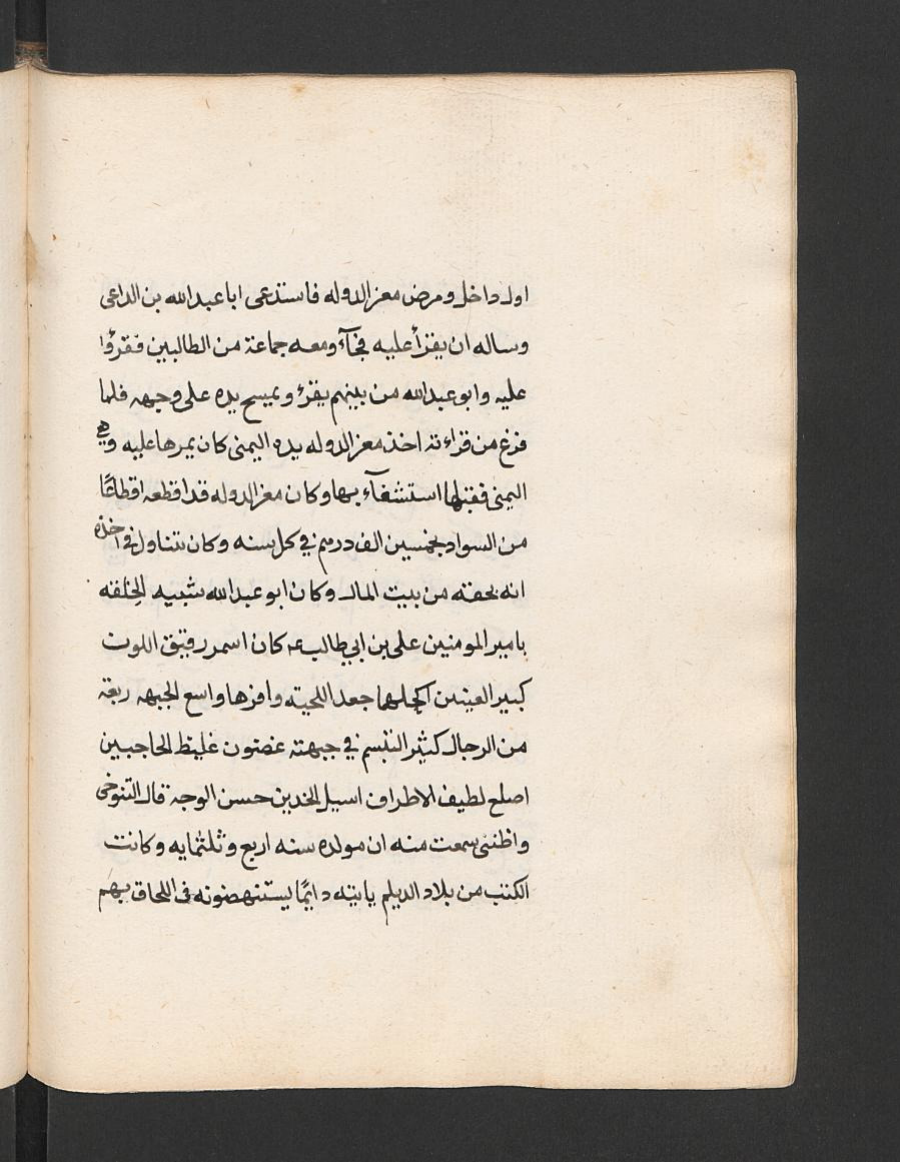 اول داخل ومرض معز الدوله فاستدعى ابا عبد الله بن الداعى
وساله ان يقرأ عليه فجآء ومعه جماعة من الطالبين فقرؤا
عليه وابو عبد الله من بينهم يقرئ ويمسح يده على وجهه فلما
فرغ من قراءته اخذ معز الدوله يده اليمنى كان يمرها عليه وهي
اليمنى فقبلها استشفآء بها وكان معز الدوله قد اقطعه اقطاعًا
من السواد بخمسين الف درهم في كل سنه وكان يتناول في اخذه
انه بحقه من بيت المال وكان ابو عبد الله شبيه الخلقه
بامير المومنين على بن ابي طالب عه كان اسمر رقيق اللون
كبير العينين اكحلها جعد اللحيته وافرها واسع الجبهه ربعة
من الرجال كثير التبسم في جبهته غضون غليظ الحاجبين
اصلع لطيف الاطراف اسيل الخدين حسن الوجه قال التنوخى
واظننى سمعت منه ان مولده سنه اربع وثلثمايه وكانت
الكتب من بلاد الديلم ياتيه دايمًا يستنهضونه فى اللحاق بهم